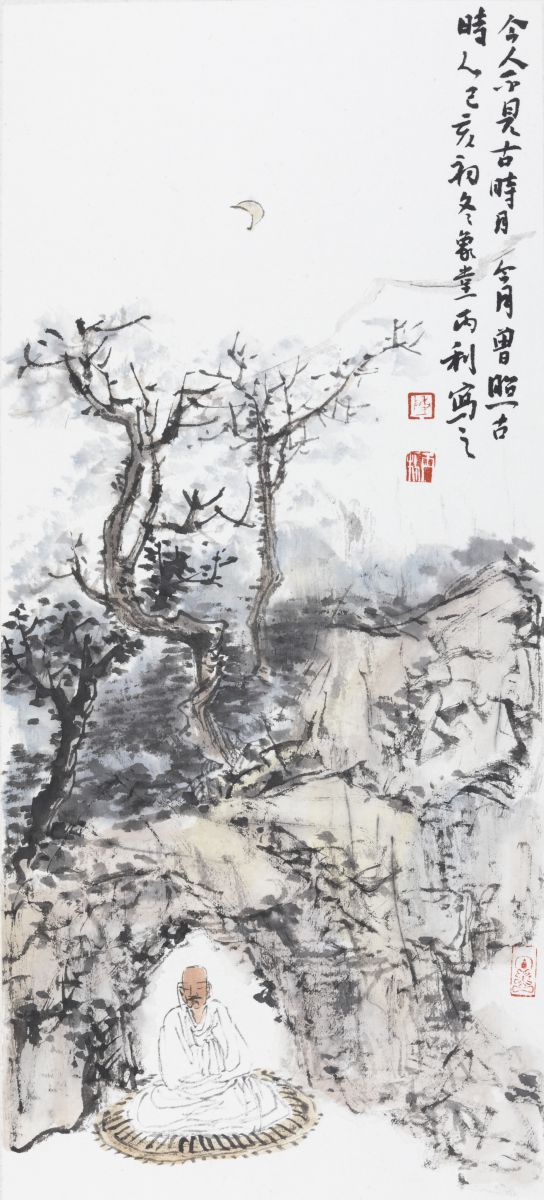 今人不見古時月今月曾照古
時人己亥初冬象堂丙利寫之